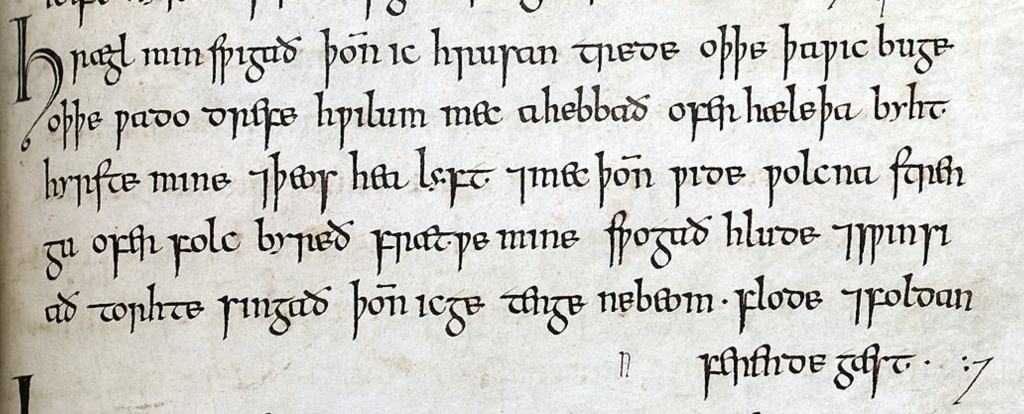 Hrægl min sƿigað þon̄ ic hrusan trede oþþe þaƿic buge
oþþe ƿado drefe hƿilum mec ahebbað ofer hæleþa byht
hyrste mine ⁊þeos hea lyft ⁊mec þon̄ ƿide ƿolcna stren
gu ofer folc byreð frætƿe mine sƿogað hlude ⁊sƿinsi
að torhte singað þon̄ icge tenge nebeom · flode ⁊foldan
ferende gæst · :7